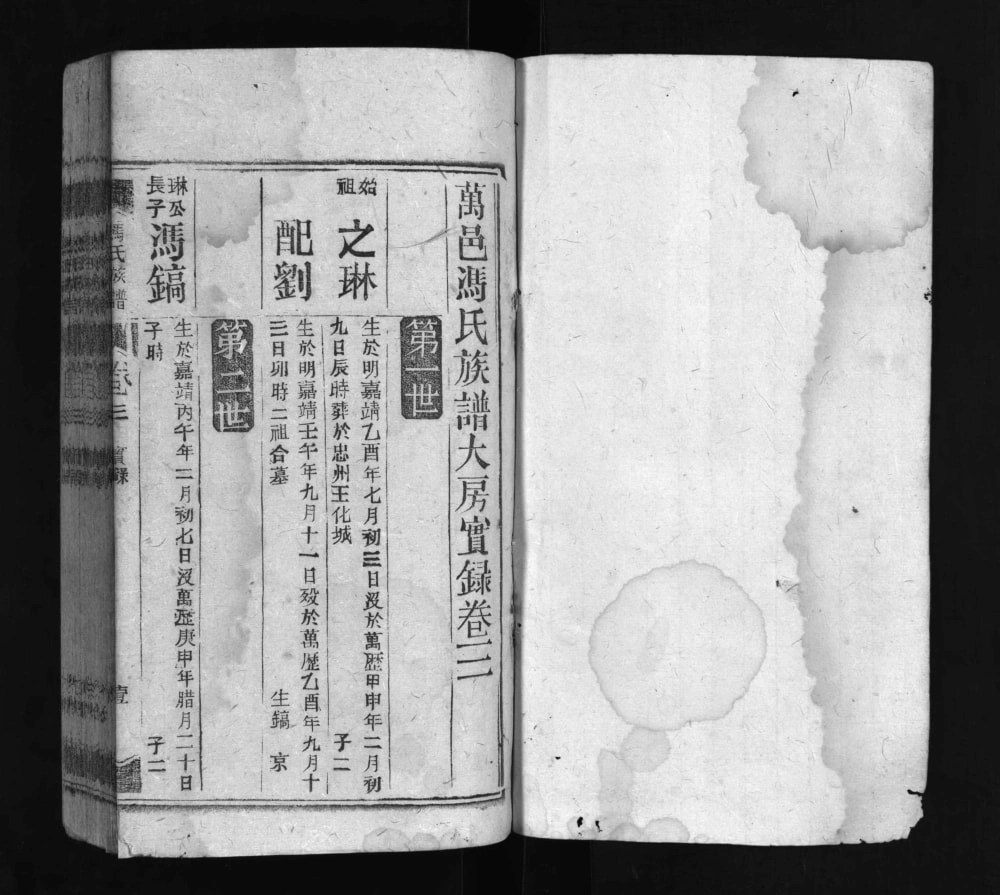 萬邑馮氏族譜大房實録卷三
第一世
始祖
之琳
生於明嘉靖乙酉年七月初三日歿於萬歷甲申年二月初
九日辰時葬於忠州王化城
子二
配劉
生於明嘉靖壬午年九月十一日歿於萬歷乙酉年九月十
三日卯時二祖合墓
生鎬 京
第二世
琳公長子
馮鎬
生於嘉靖丙午年二月初七日歿萬歷庚申年腊月二十日
子時
子二
馮氏族譜
卷三
實録
壹